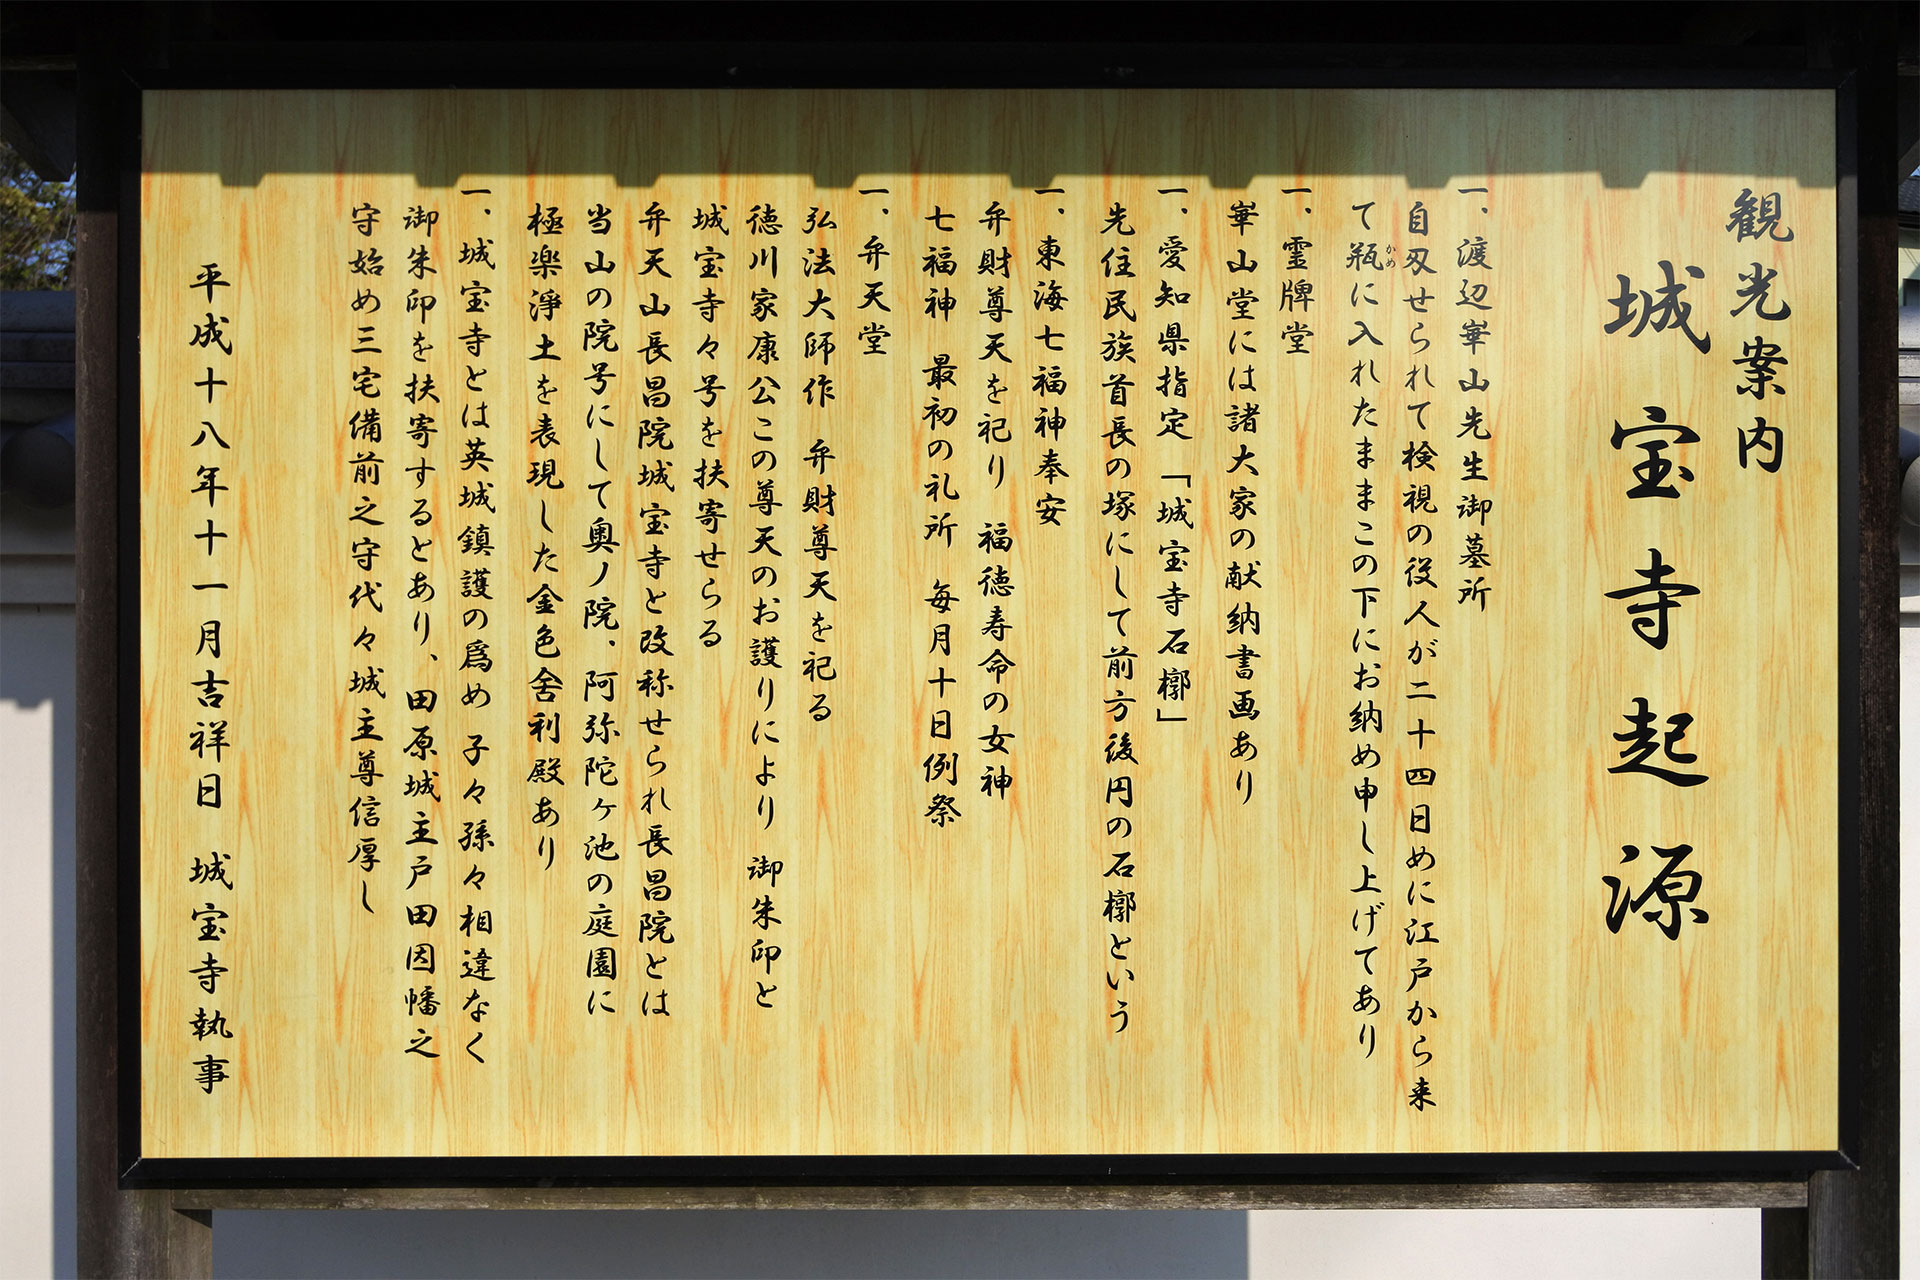 観光案内
城宝寺起源
一、渡辺崋山先生御墓所
自刃せられて検視の役人が二十四日めに江戸から来
て瓶に入れたままこの下にお納め申し上げてあり
かめ
一、霊牌堂
崋山堂には諸大家の献納書画あり
一、愛知県指定「城宝寺石槨」
先住民族首長の塚にして前方後円の石槨という
一、東海七福神奉安
弁財尊天を祀り　福徳寿命の女神
七福神　最初の礼所　毎月十日例祭
一、弁天堂
弘法大師作　弁財尊天を祀る
徳川家康公この尊天のお護りにより　御朱印と
城宝寺々号を扶寄せらる
弁天山長昌院城宝寺と改称せられ長昌院とは
当山の院号にして奥ノ院、阿弥陀ヶ池の庭園に
極楽浄土を表現した金色舎利殿あり
一、城宝寺とは英城鎮護の為め　子々孫々相違なく
御朱印を扶寄するとあり、田原城主戸田因幡之
守始め三宅備前之守代々城主尊信厚し
平成十八年十一月吉祥日　城宝寺執事